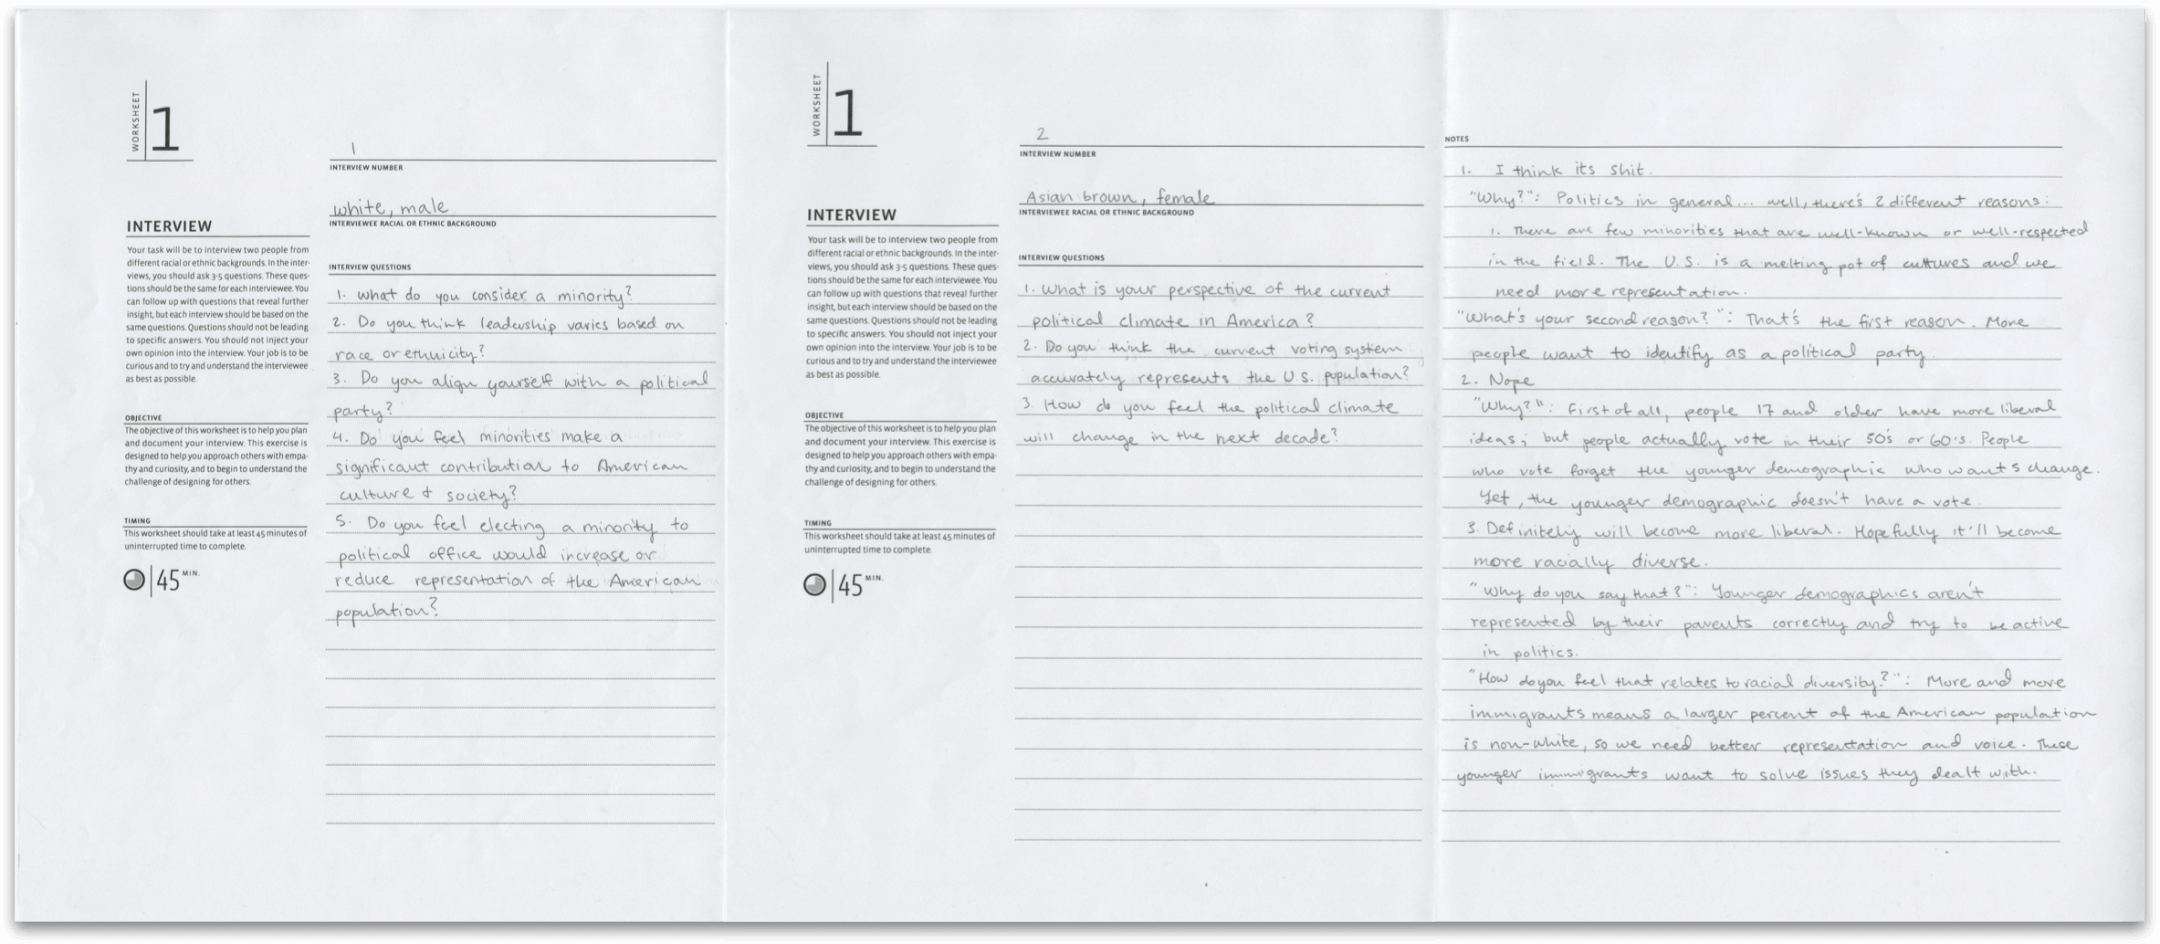 WORKSHEET
1
1
INTERVIEW NUMBER
white, male
INTERVIEWEE RACIAL OR ETHNIC BACKGROUND
INTERVIEW
Your task will be to interview two people from
different racial or ethnic backgrounds. In the inter-
views, you should ask 3-5 questions. These ques-
tions should be the same for each interviewee. You
can follow up with questions that reveal further
insight, but each interview should be based on the
same questions. Questions should not be leading
to specific answers. You should not inject your
own opinion into the interview. Your job is to be
curious and to try and understand the interviewee
as best as possible.
OBJECTIVE
The objective of this worksheet is to help you plan
and document your interview. This exercise is
designed to help you approach others with empa-
thy and curiosity, and to begin to understand the
challenge of designing for others.
TIMING
This worksheet should take at least 45 minutes of
uninterrupted time to complete.
45 MIN.
INTERVIEW QUESTIONS
1. What do you consider a minority?
2. Do you think leadership varies based on
race or ethnicity?
3. Do you align yourself with a political
party?
4. Do you feel minorities make a
significant contribution to American
culture + society?
5. Do you feel electing a minority to
political office would increase or
reduce representation of the American
population?
WORKSHEET
1
2
INTERVIEW NUMBER
Asian brown, female
INTERVIEWEE RACIAL OR ETHNIC BACKGROUND
INTERVIEW
Your task will be to interview two people from
different racial or ethnic backgrounds. In the inter-
views, you should ask 3-5 questions. These ques-
tions should be the same for each interviewee. You
can follow up with questions that reveal further
insight, but each interview should be based on the
same questions. Questions should not be leading
to specific answers. You should not inject your
own opinion into the interview. Your job is to be
curious and to try and understand the interviewee
as best as possible.
OBJECTIVE
The objective of this worksheet is to help you plan
and document your interview. This exercise is
designed to help you approach others with empa-
thy and curiosity, and to begin to understand the
challenge of designing for others.
TIMING
This worksheet should take at least 45 minutes of
uninterrupted time to complete.
45 MIN.
INTERVIEW QUESTIONS
1. What is your perspective of the current
political climate in America?
2. Do you think the current voting system
accurately represents the U.S. population?
3. How do you feel the political climate
will change in the next decade?
NOTES
1. I think its shit.
"Why?": Politics in general... well, there's 2 different reasons:
1. There are few minorities that are well-known or well-respected
in the field. The U.S. is a melting pot of cultures and we
need more representation.
"What's your second reason?": That's the first reason. More
people want to identify as a political party.
2. Nope
"Why?": First of all, people 17 and older have more liberal
ideas; but people actually vote in their 50's or 60's. People
who vote forget the younger demographic who wants change.
Yet, the younger demographic doesn't have a vote.
3. Definitely will become more liberal. Hopefully it'll become
more racially diverse.
"Why do you say that?": Younger demographics aren't
represented by their parents correctly and try to be active
in politics.
"How do you feel that relates to racial diversity?": More and more
immigrants means a larger percent of the American population
is non-white, so we need better representation and voice. These
younger immigrants want to solve issues they dealt with.